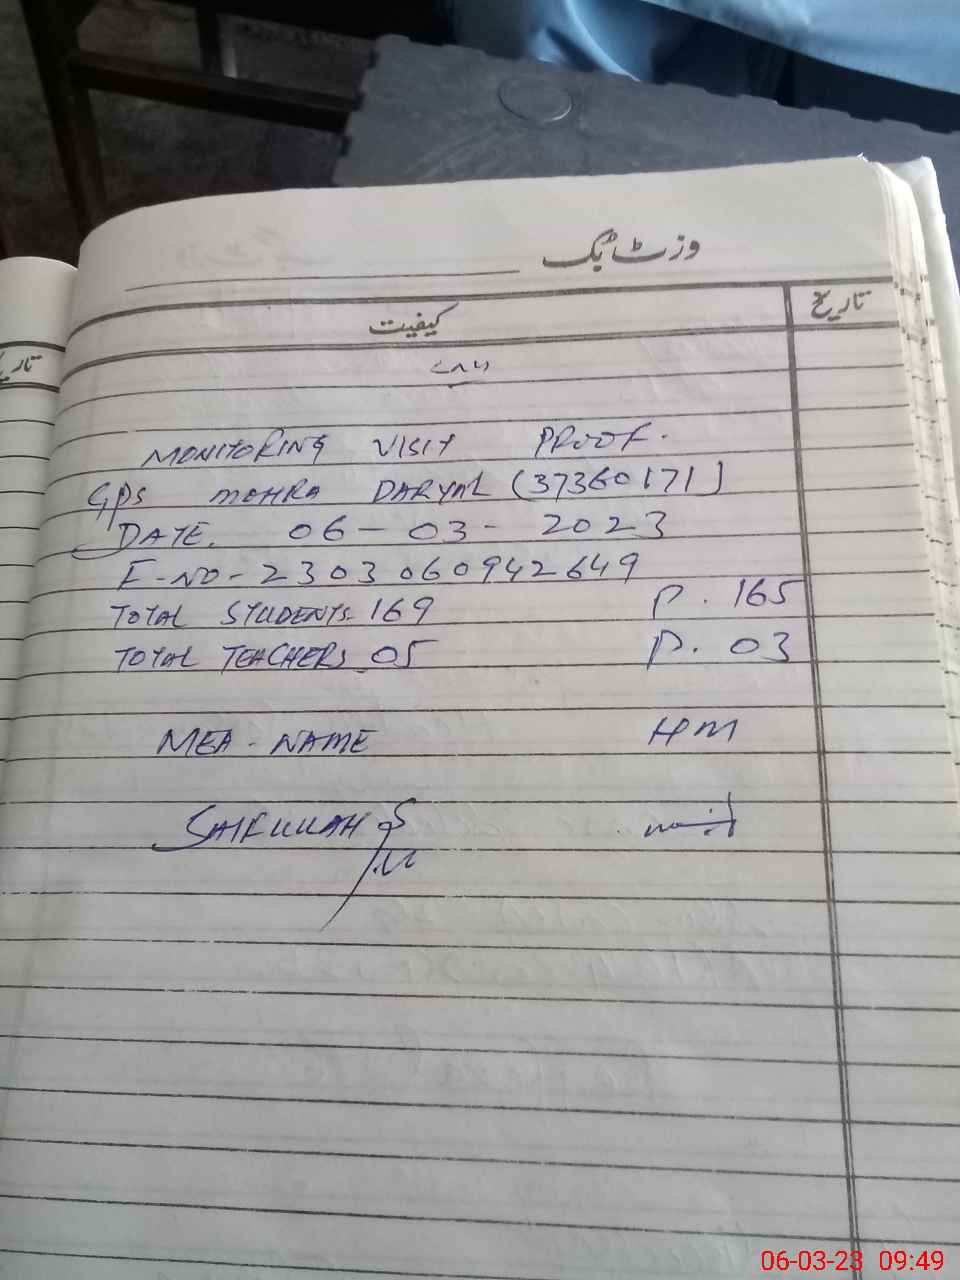 وزٹ بک
کیفیت
تاریخ
MONITORING VISIT PROOF.
GPS MOHRA DARYAL (37360171)
DATE. 06-03-2023
F-NO-2303060942649
TOTAL STUDENTS 169 P. 165
TOTAL TEACHERS 05 P. 03
MEA-NAME HM
SAIFULLAH
06-03-23 09:49